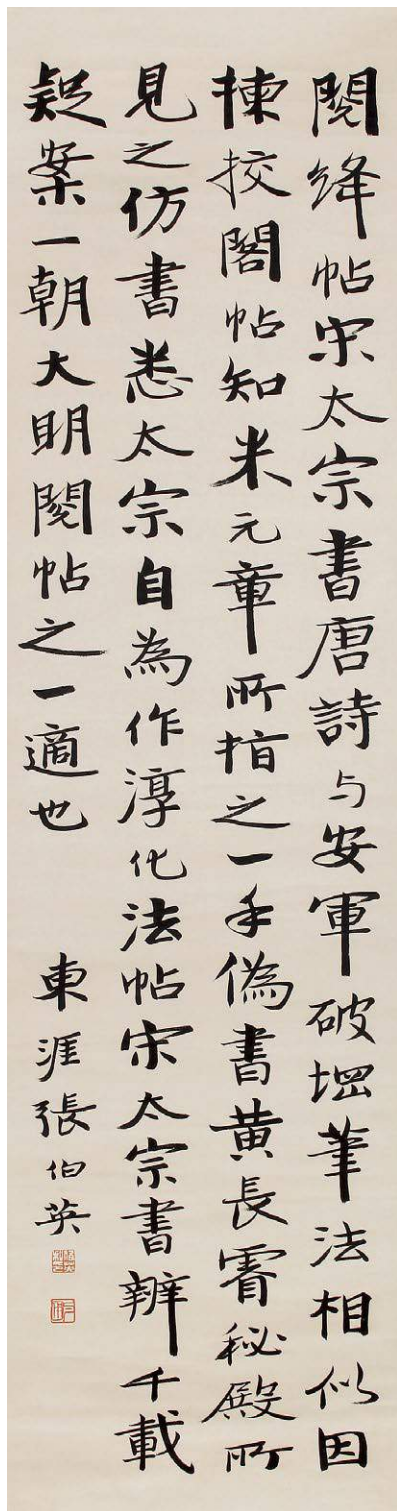 閱绛帖宋太宗書唐詩与安軍破堈筆法相似因
揀挍閣帖知米元章所指之一手偽書黄長睿秘殿所
見之仿書悉太宗自為作淳化法帖宋太宗書辨千載
疑案一朝大明閱帖之一適也
東涯張伯英